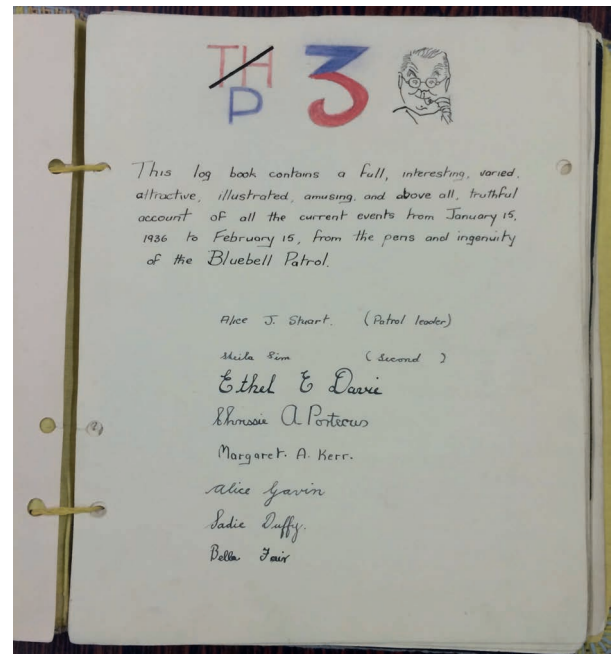 TH
P
3
This log book contains a full, interesting, varied,
attractive, illustrated, amusing, and above all, truthful
account of all the current events from January 15,
1936 to February 15, from the pens and ingenuity
of the Bluebell Patrol.
Alice J. Stuart. (Patrol leader)
Sheila Sim (Second)
Ethel E Davie
A Porteous
Margaret. A. Kerr.
Alice Gavin
Sadie Duffy.
Bella Fair